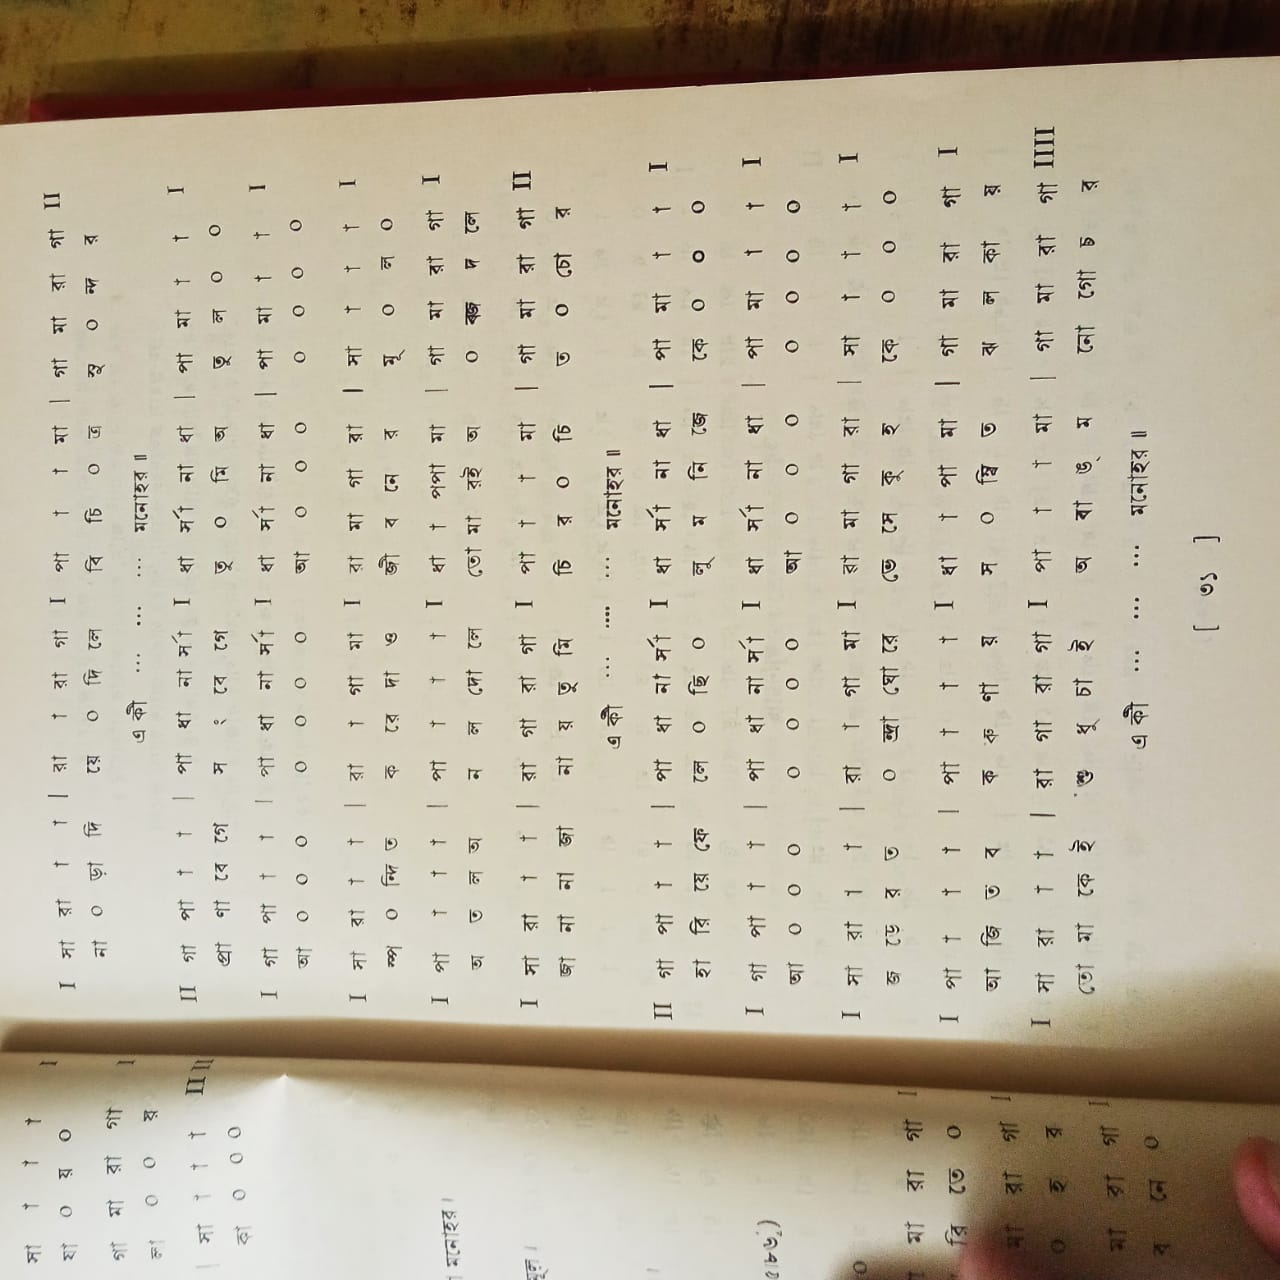 I সা রা া া | রা া রা গা I পা া া মা | গা মা রা গা II
না ০ ড়া দি য়ে ০ দি লে বি চি ০ ত্র সু ০ ন্দ র
এ কী ... ... ... মনোহর ॥
II গা পা া া | পা ধা না র্সা I ধা র্সা না ধা | পা মা া া I
প্রা ণা বে গে স ং বে গে তু ০ মি অ তু ল ০ ০
I গা পা া া | পা ধা না র্সা I ধা র্সা না ধা | পা মা া া I
আ ০ ০ ০ ০ ০ ০ ০ আ ০ ০ ০ ০ ০ ০ ০
I সা রা া া | রা া গা মা I রা মা গা রা | সা া া া I
স্প ০ ন্দি ত ক রে দা ও জী ব নে র মূ ০ ল ০
I পা া া া | পা া া া I ধা া পপা মা | গা মা রা গা I
অ ত ল অ ন ল দো লে তো মা রই অ ০ দ লে
I সা রা া া | রা গা রা গা I পা া া মা | গা মা রা গা II
জা না না জা না য় তু মি চি র ০ চি ত ০ চো র
এ কী ... .... ... মনোহর ॥
II গা পা া া | পা ধা না র্সা I ধা র্সা না ধা | পা মা া া I
হা রি য়ে ফে লে ০ ছি ০ লূ ম নি জে কে ০ ০ ০
I গা পা া া | পা ধা না র্সা I ধা র্সা না ধা | পা মা া া I
আ ০ ০ ০ ০ ০ ০ ০ আ ০ ০ ০ ০ ০ ০ ০
I সা রা া া | রা া গা মা I রা মা গা রা | সা া া া I
জ ড়ে র ত ০ ন্দ্রা ঘো রে ভে সে কু হ কে ০ ০ ০
I পা া া া | পা া া া I ধা া পা মা | গা মা রা গা I
আ জি ত ব ক রু ণা য় স ০ ম্বি ত ঝ ল কা য়
I সা রা া া | রা গা রা গা I পা া া মা | গা মা রা গা IIII
তো মা কে ই শু ধু চা ই অ বা ঙ্ ম নো গো চ র
এ কী ... ... ... মনোহর ॥
[ ৩১ ]
সা া া া I
যা ০ য় ০
গা মা রা গা I
লা ০ ০ য়
| সা া া া II ॥
০ ০ ০
মনোহর ।
মা রা গা I
রি তে ০
মা রা গা I
০ হ র
মা রা গা I
ব নে ০